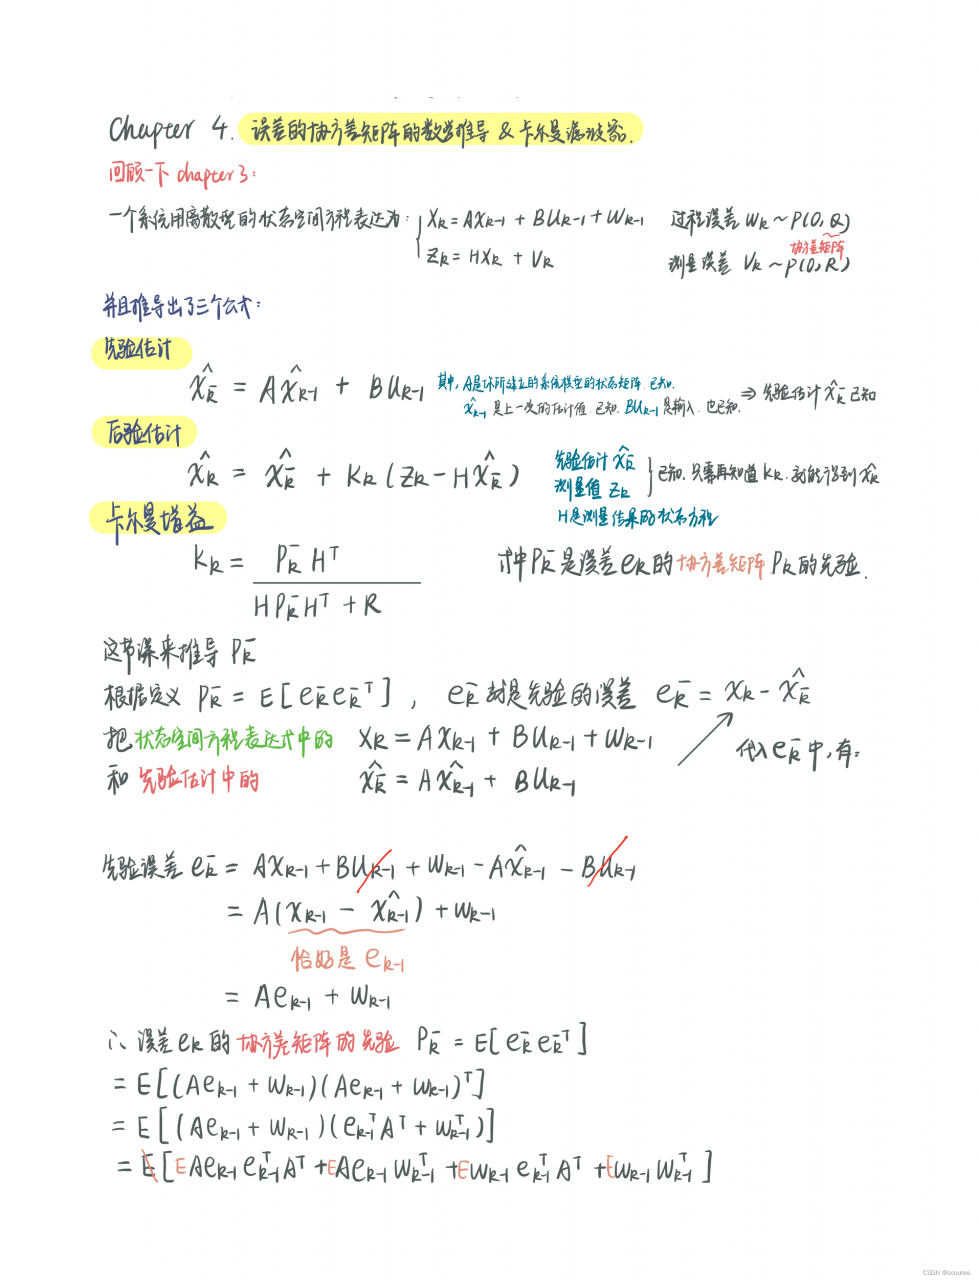 Chapter 4. 误差的协方差矩阵的数学推导 & 卡尔曼滤波器.
回顾一下 chapter 3:
一个系统用离散型的状态空间方程表达为: { Xₖ = AXₖ₋₁ + BUₖ₋₁ + Wₖ₋₁ 过程误差 Wₖ ~ P(0, Q)
Zₖ = HXₖ + Vₖ 测量误差 Vₖ ~ P(0, R)
协方差矩阵
并且推导出了三个公式:
先验估计
x̂ₖ⁻ = Ax̂ₖ₋₁ + BUₖ₋₁ 其中, A是你所建立的系统模型的状态矩阵. 已知.
x̂ₖ₋₁ 是上一次的估计值. 已知. BUₖ₋₁是输入. 也已知. ⇒ 先验估计 x̂ₖ⁻ 已知
后验估计
x̂ₖ = x̂ₖ⁻ + Kₖ (Zₖ - Hx̂ₖ⁻) 先验估计 x̂ₖ⁻
测量值 Zₖ } 已知. 只需再知道 Kₖ. 就能得到 x̂ₖ
H是测量结果的状态方程
卡尔曼增益
Kₖ = Pₖ⁻ Hᵀ / (H Pₖ⁻ Hᵀ + R) 求中 Pₖ⁻ 是误差 eₖ 的协方差矩阵 Pₖ 的先验.
这节课来推导 Pₖ⁻
根据定义 Pₖ⁻ = E[eₖ⁻ eₖ⁻ᵀ] , eₖ⁻ 就是先验的误差 eₖ⁻ = xₖ - x̂ₖ⁻
把 状态空间方程表达式中的 Xₖ = AXₖ₋₁ + BUₖ₋₁ + Wₖ₋₁
和 先验估计中的 x̂ₖ⁻ = Ax̂ₖ₋₁ + BUₖ₋₁ 代入 eₖ⁻ 中, 有:
先验误差 eₖ⁻ = AXₖ₋₁ + BUₖ₋₁ + Wₖ₋₁ - Ax̂ₖ₋₁ - BUₖ₋₁
= A(xₖ₋₁ - x̂ₖ₋₁) + Wₖ₋₁
恰好是 eₖ₋₁
= Aeₖ₋₁ + Wₖ₋₁
∴ 误差 eₖ 的 协方差矩阵的先验 Pₖ⁻ = E[eₖ⁻ eₖ⁻ᵀ]
= E[(Aeₖ₋₁ + Wₖ₋₁)(Aeₖ₋₁ + Wₖ₋₁)ᵀ]
= E[(Aeₖ₋₁ + Wₖ₋₁)(eₖ₋₁ᵀAᵀ + Wₖ₋₁ᵀ)]
= E[E Aeₖ₋₁ eₖ₋₁ᵀ Aᵀ + E Aeₖ₋₁ Wₖ₋₁ᵀ + E Wₖ₋₁ eₖ₋₁ᵀ Aᵀ + E Wₖ₋₁ Wₖ₋₁ᵀ]